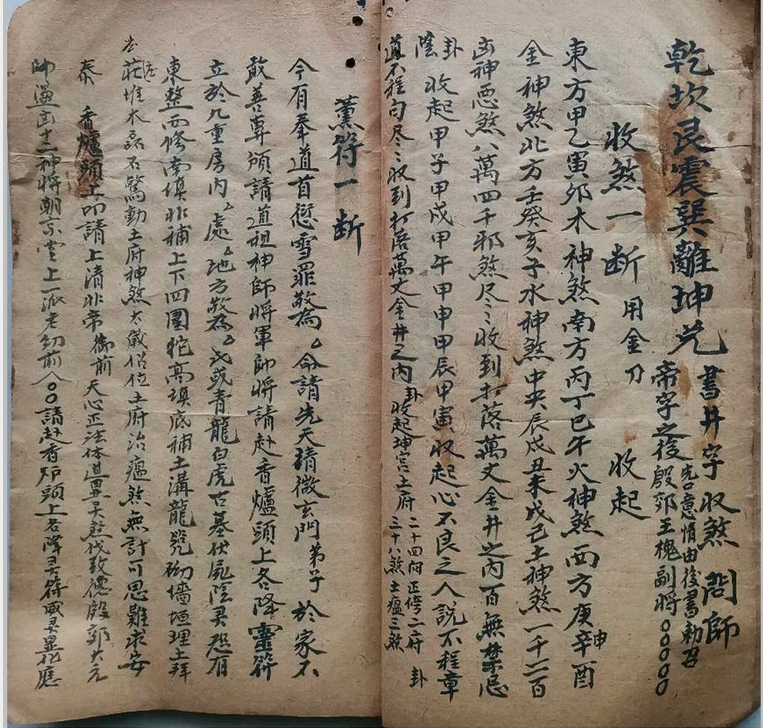 乾坎艮震巽離坤兌 書井字收煞 問師
帝字之後 先艺意情由後書勅召
殷郊王槐副將〇〇〇〇〇
收煞一断 用金刀 收起
東方甲乙寅卯木神煞南方丙丁巳午火神煞西方庚辛申酉
金神煞北方壬癸亥子水神煞中央辰戌丑未戊己土神煞一千二百
凶神悪煞八萬四千邪煞尽〻收到打落萬丈金井之內百無禁忌
卦 收起甲子甲戌甲午甲申甲辰甲寅收起心不良之人説不程章
陰
道不程句尽〻收到打落萬丈金井之内 卦 收起坤宮土府 二十四向正修二府 卦
三十八煞土瘟三煞
薰符一断
今有奉道首愆雪罪敬為 命請先天清微玄門弟子 於家不
敢善專煩請道祖神師將軍師將請赴香爐頭上各降靈符
立於九重房内 處 地方敬為 戊或青龍白虎古基伏屍陰灵恐有
東整西修南填北補上下四圍挖高填底補土溝龍 砌墙垣埋土拜
庄堆木磊石驚動土府神煞太歲侶位土府治瘟煞無計可思難求安
泰 香爐頭上叩請上清北帝御前天心正法 道 天煞伐致德殷郊大元
帥 部十二神將朝宗 上一派老幼前人〇〇請赴香炉頭上各降灵符 灵显應